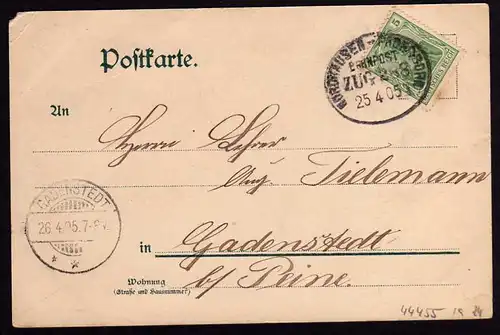 Postkarte.
5
NORDHAUSEN
BAHNPOST
ZUG
25 4 05
An
Herrn Lehrer
Aug. Tielemann
GADENSTEDT
26.4.05.7-8V.
in Gadenstedt
b/ Peine.
Wohnung
(Straße und Hausnummer)
44455